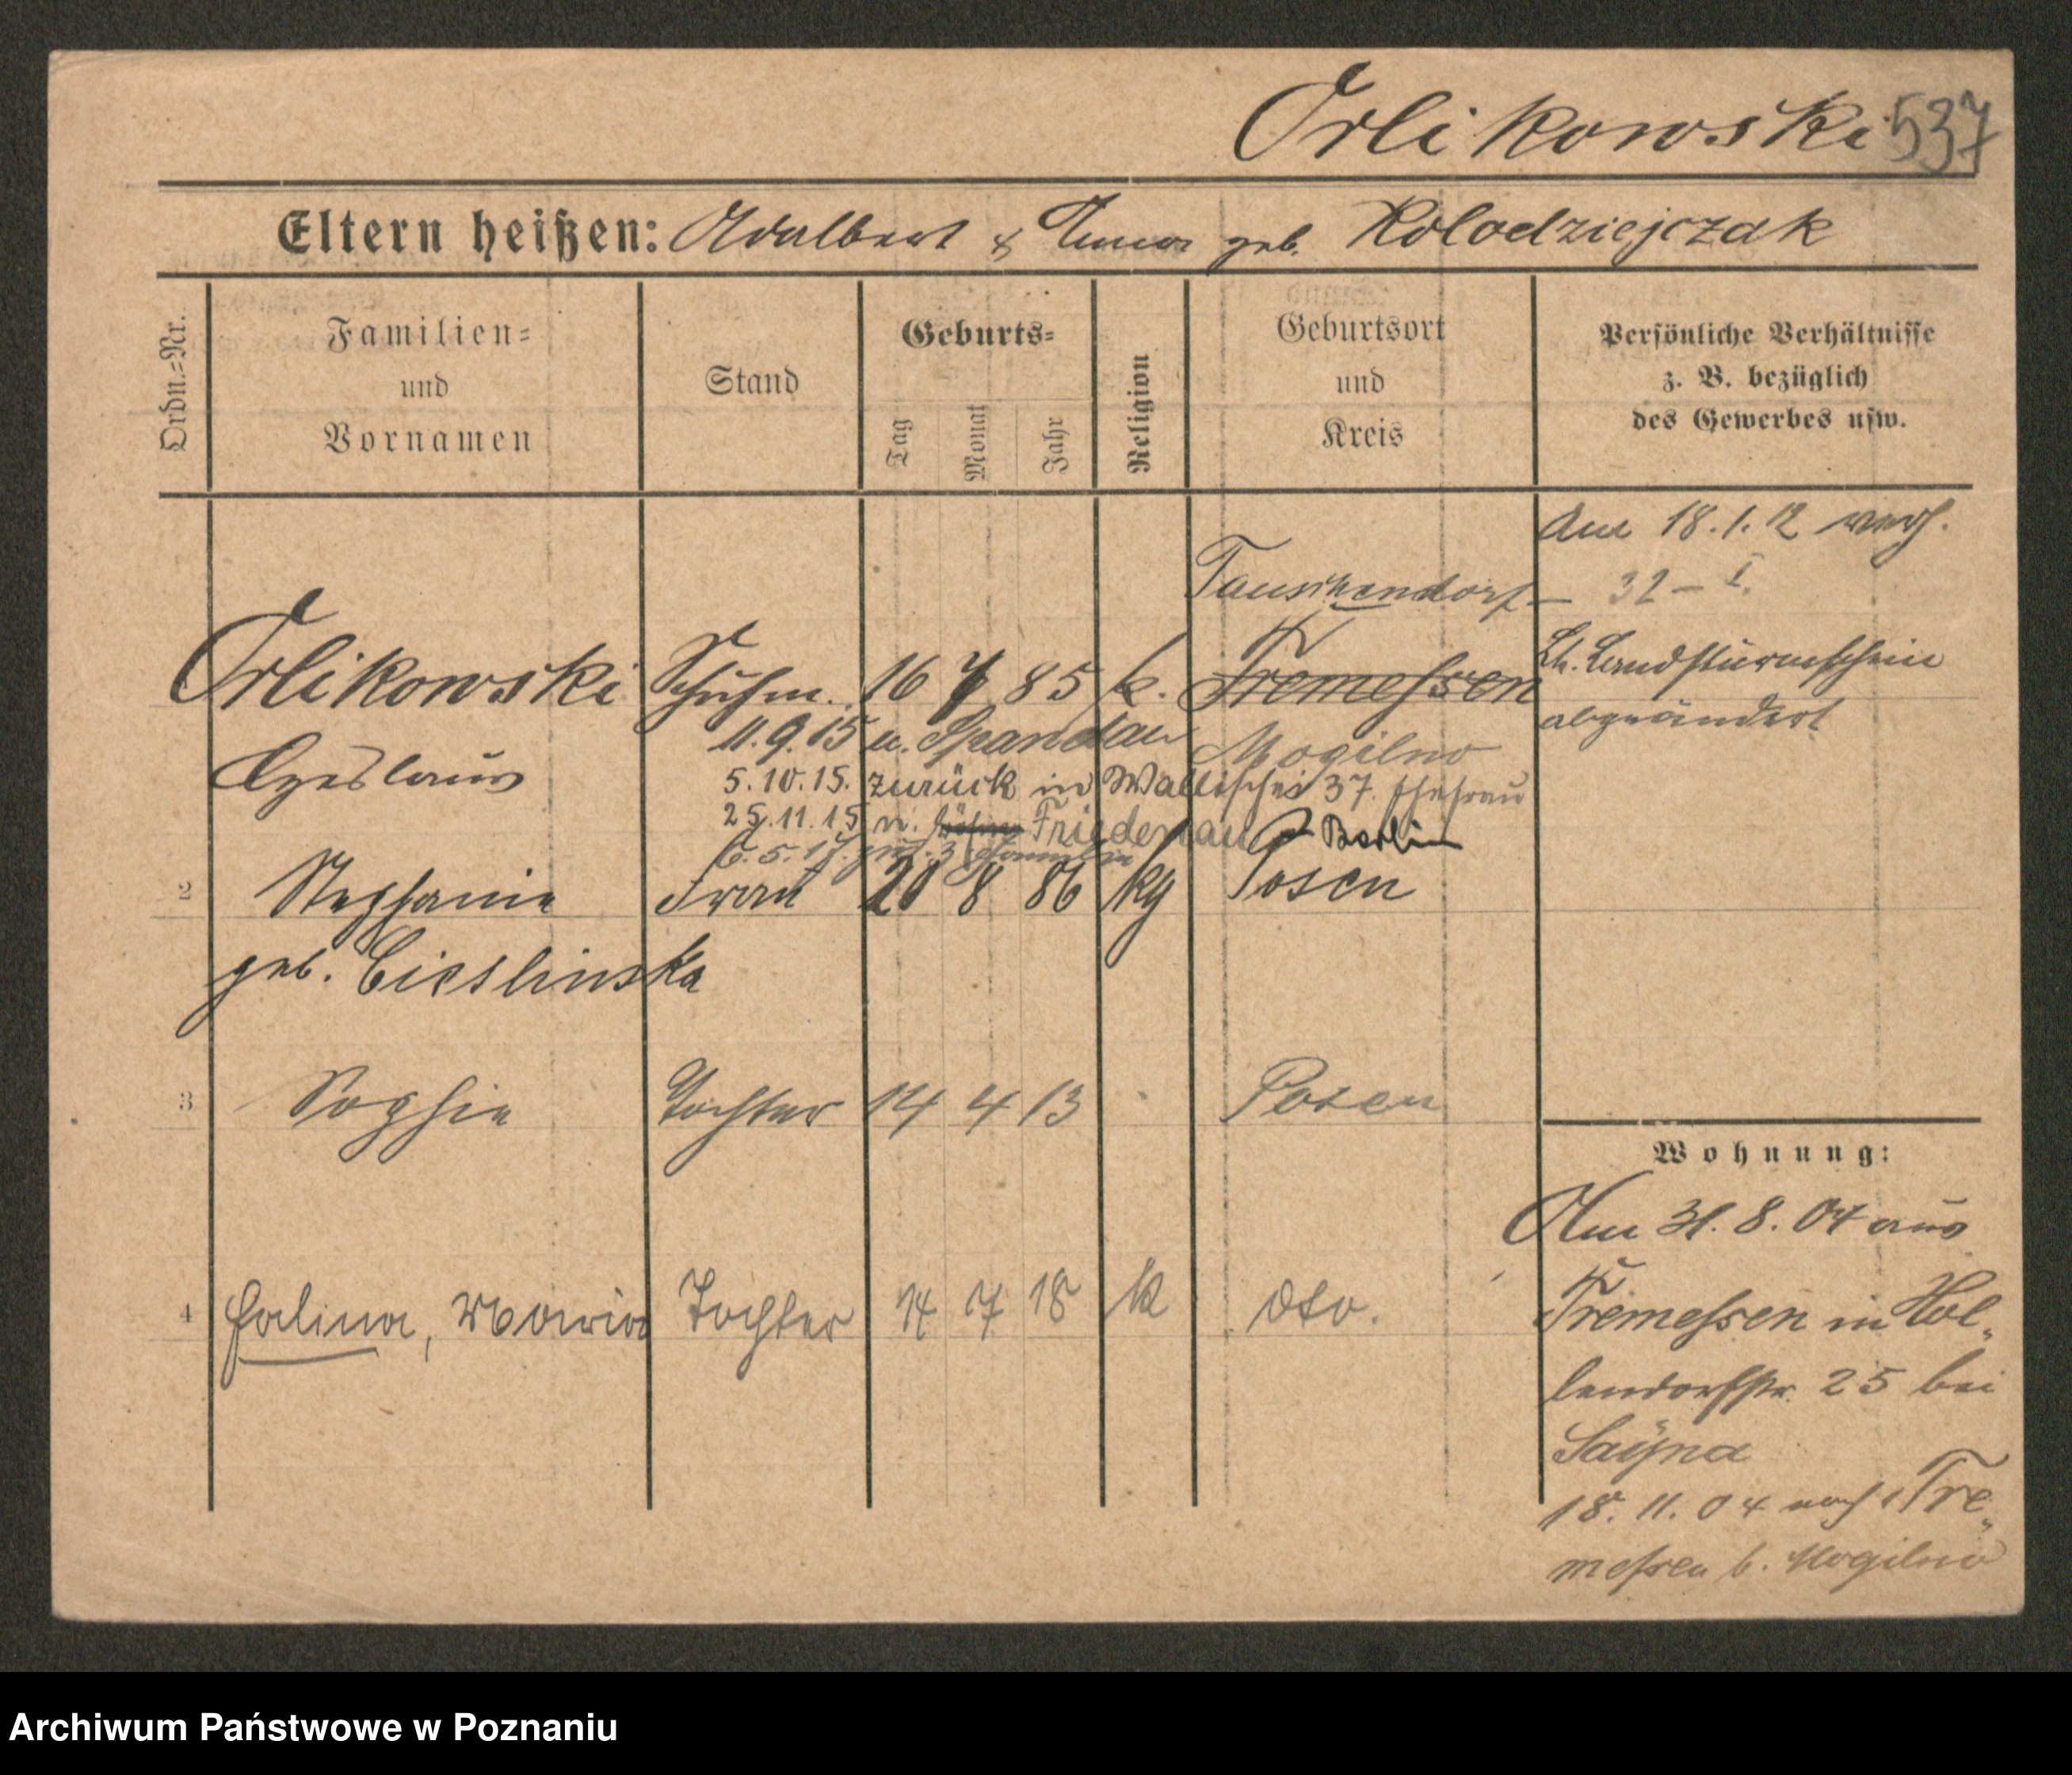 Orlikowski 537
Eltern heißen: Adalbert & Anna geb. Kolodziejczak
Ordn.-Nr.
Familien-
und
Vornamen
Stand
Geburts-
Tag
Monat
Jahr
Religion
Geburtsort
und
Kreis
Persönliche Verhältnisse
z. B. bezüglich
des Gewerbes usw.
Am 18.1.12 verh.
Tauschendorf — 32 – I.
Orlikowski Schuhm. 16 7 85 k. Tremessen
Lt. Landsturmschein
abgeändert
11.9.15 n. Spandau Mogilno
Czeslaus
5.10.15. zurück in Wallischei 37. Ehefrau
25.11.15 n. Friedenau Berlin
6.5.17.
2 Stephanie Frau 20 8 86 kg Posen
geb. Cieslinska
3 Sophie Tochter 14 4 13 Posen
Wohnung:
Am 31.8.04 aus
Tremessen in Hol„
lendorfstr. 25 bei
Sajna
18.11.04 nach Tre„
messen b. Mogilno
4 Halina, Maria Tochter 14 7 18 k dto.
Archiwum Państwowe w Poznaniu